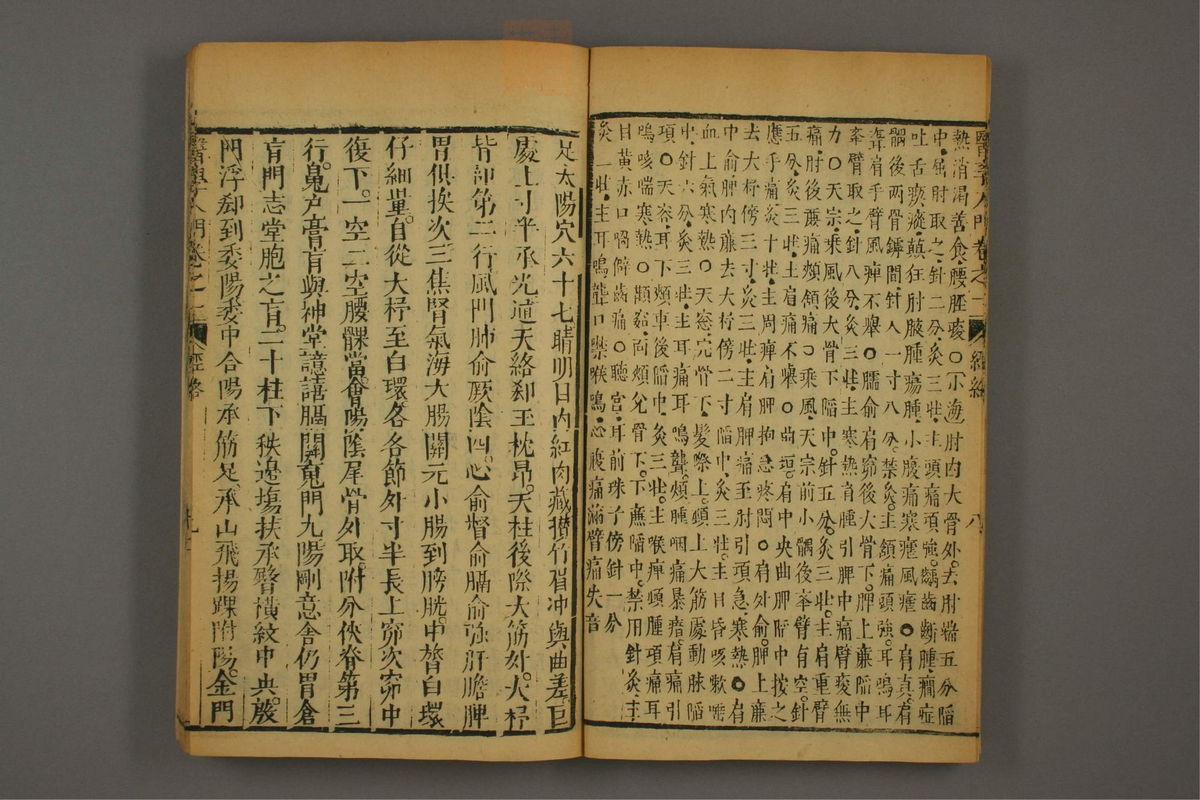 醫學入門 卷之一 經絡 八
熱消渴善食腰脛痠○小海肘內大骨外去肘端五分陷
中屈肘取之針二分灸三壯主頭痛項強齲齒齗腫癎症
吐舌瘈瘲癲狂肘腋腫瘍腫小腹痛寒瘧風瘧○肩真肩
髃後兩骨罅間針入一寸八分禁灸主頷痛頭強耳鳴耳
聾肩手臂風痺不舉○臑俞肩窌後大骨下胛上廉陷中
舉臂取之針八分灸三壯主寒熱肩腫引胛中痛臂痠無
力○天宗秉風後大骨下陷中針五分灸三壯主肩重臂
痛肘後廉痛頰頷痛○秉風天宗前小髃後舉臂有空針
五分灸三壯主肩痛不舉○曲垣肩中央曲胛陷中按之
應手痛灸十壯主周痺肩胛拘急疼悶○肩外俞胛上廉
去大杼傍三寸灸三壯主肩胛痛至肘引項急寒熱○肩
中俞胛內廉去大杼傍二寸陷中灸三壯主目昏咳嗽唾
血上氣寒熱○天窓完骨下髮際上頸上大筋處動脉陷
中針六分灸三壯主耳痛耳鳴聾頰腫咽痛暴瘖肩痛引
項○天容耳下頰車後陷中灸三壯主喉痺頸腫項痛耳
鳴咳喘寒熱○顴窌面頄兌骨下下廉陷中禁用針灸主
目黃赤口喎僻齒痛○聽宮耳前珠子傍針一分
灸一壯主耳鳴聾口噤喉鳴心腹痛滿臂痛失音
足太陽穴六十七睛明目內紅肉藏攢竹眉冲與曲差五
處上寸半承光通天絡却玉枕昂天柱後際大筋外大杼
背部第二行風門肺俞厥陰四心俞督俞膈俞強肝膽脾
胃俱挨次三焦腎氣海大腸關元小腸到膀胱中膂白環
仔細量自從大杼至白環各各節外寸半長上窌次窌中
復下一空二空腰髁當會陽陰尾骨外取附分俠脊第三
行魄户膏肓與神堂譩譆膈關䰟門九陽剛意舍仍胃倉
肓門志堂胞之肓二十柱下秩邊塲扶承臀橫紋中央殷
門浮却到委陽委中合陽承筋是承山飛揚踝附陽金門
醫學入門 卷之一 經絡